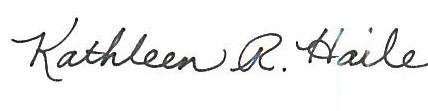 Kathleen R. Haile